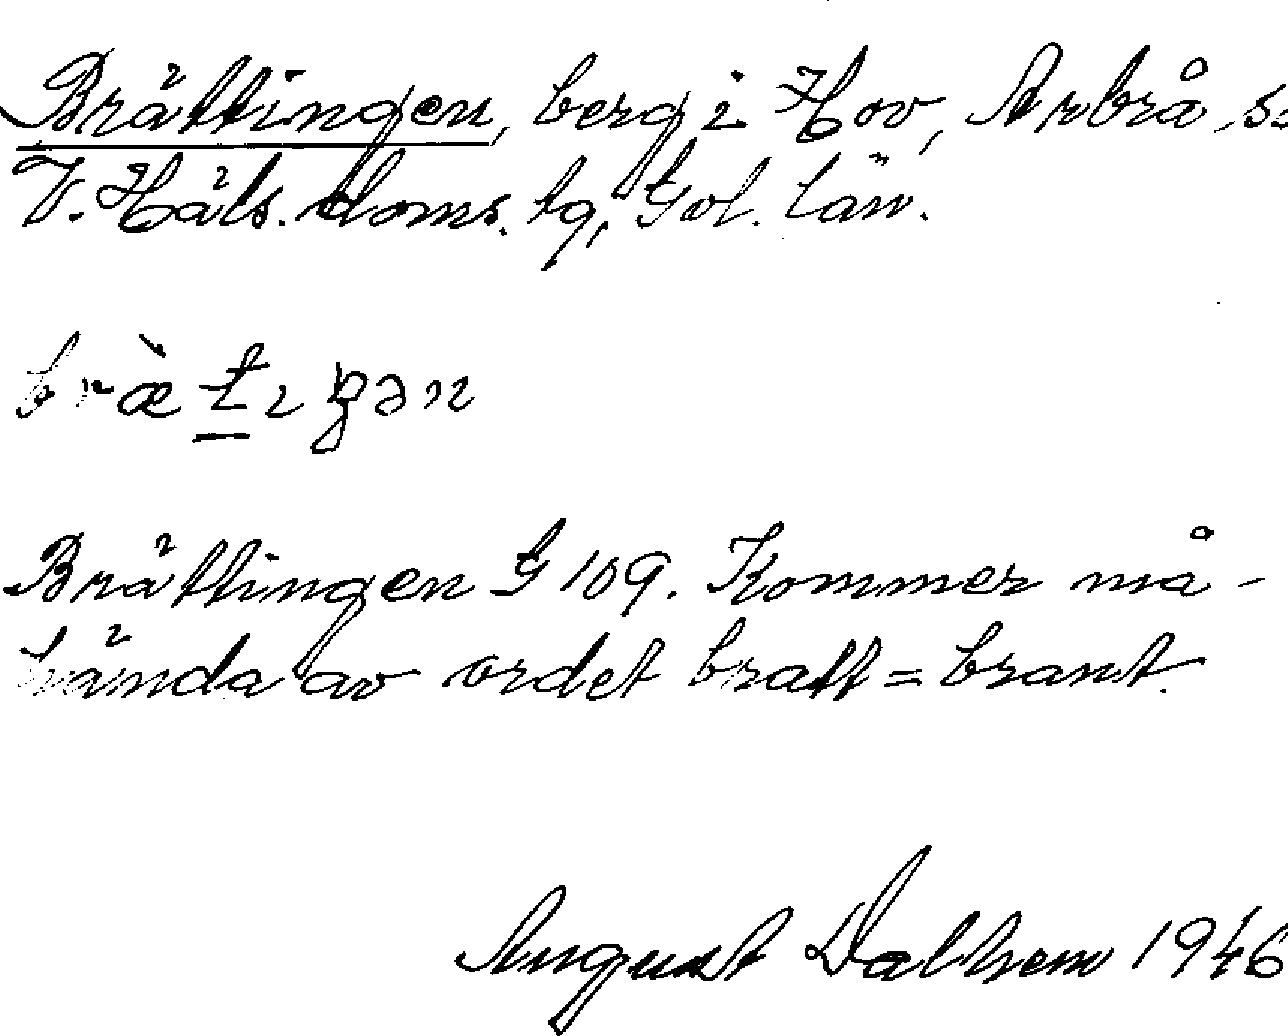 Brättingen, berg i Hov, Arbrå s
V. Häls. doms. tg, Gvl. län.
Brättingen G 109. Kommer må-
hända av ordet bratt = brant.
August Dalhem 1946